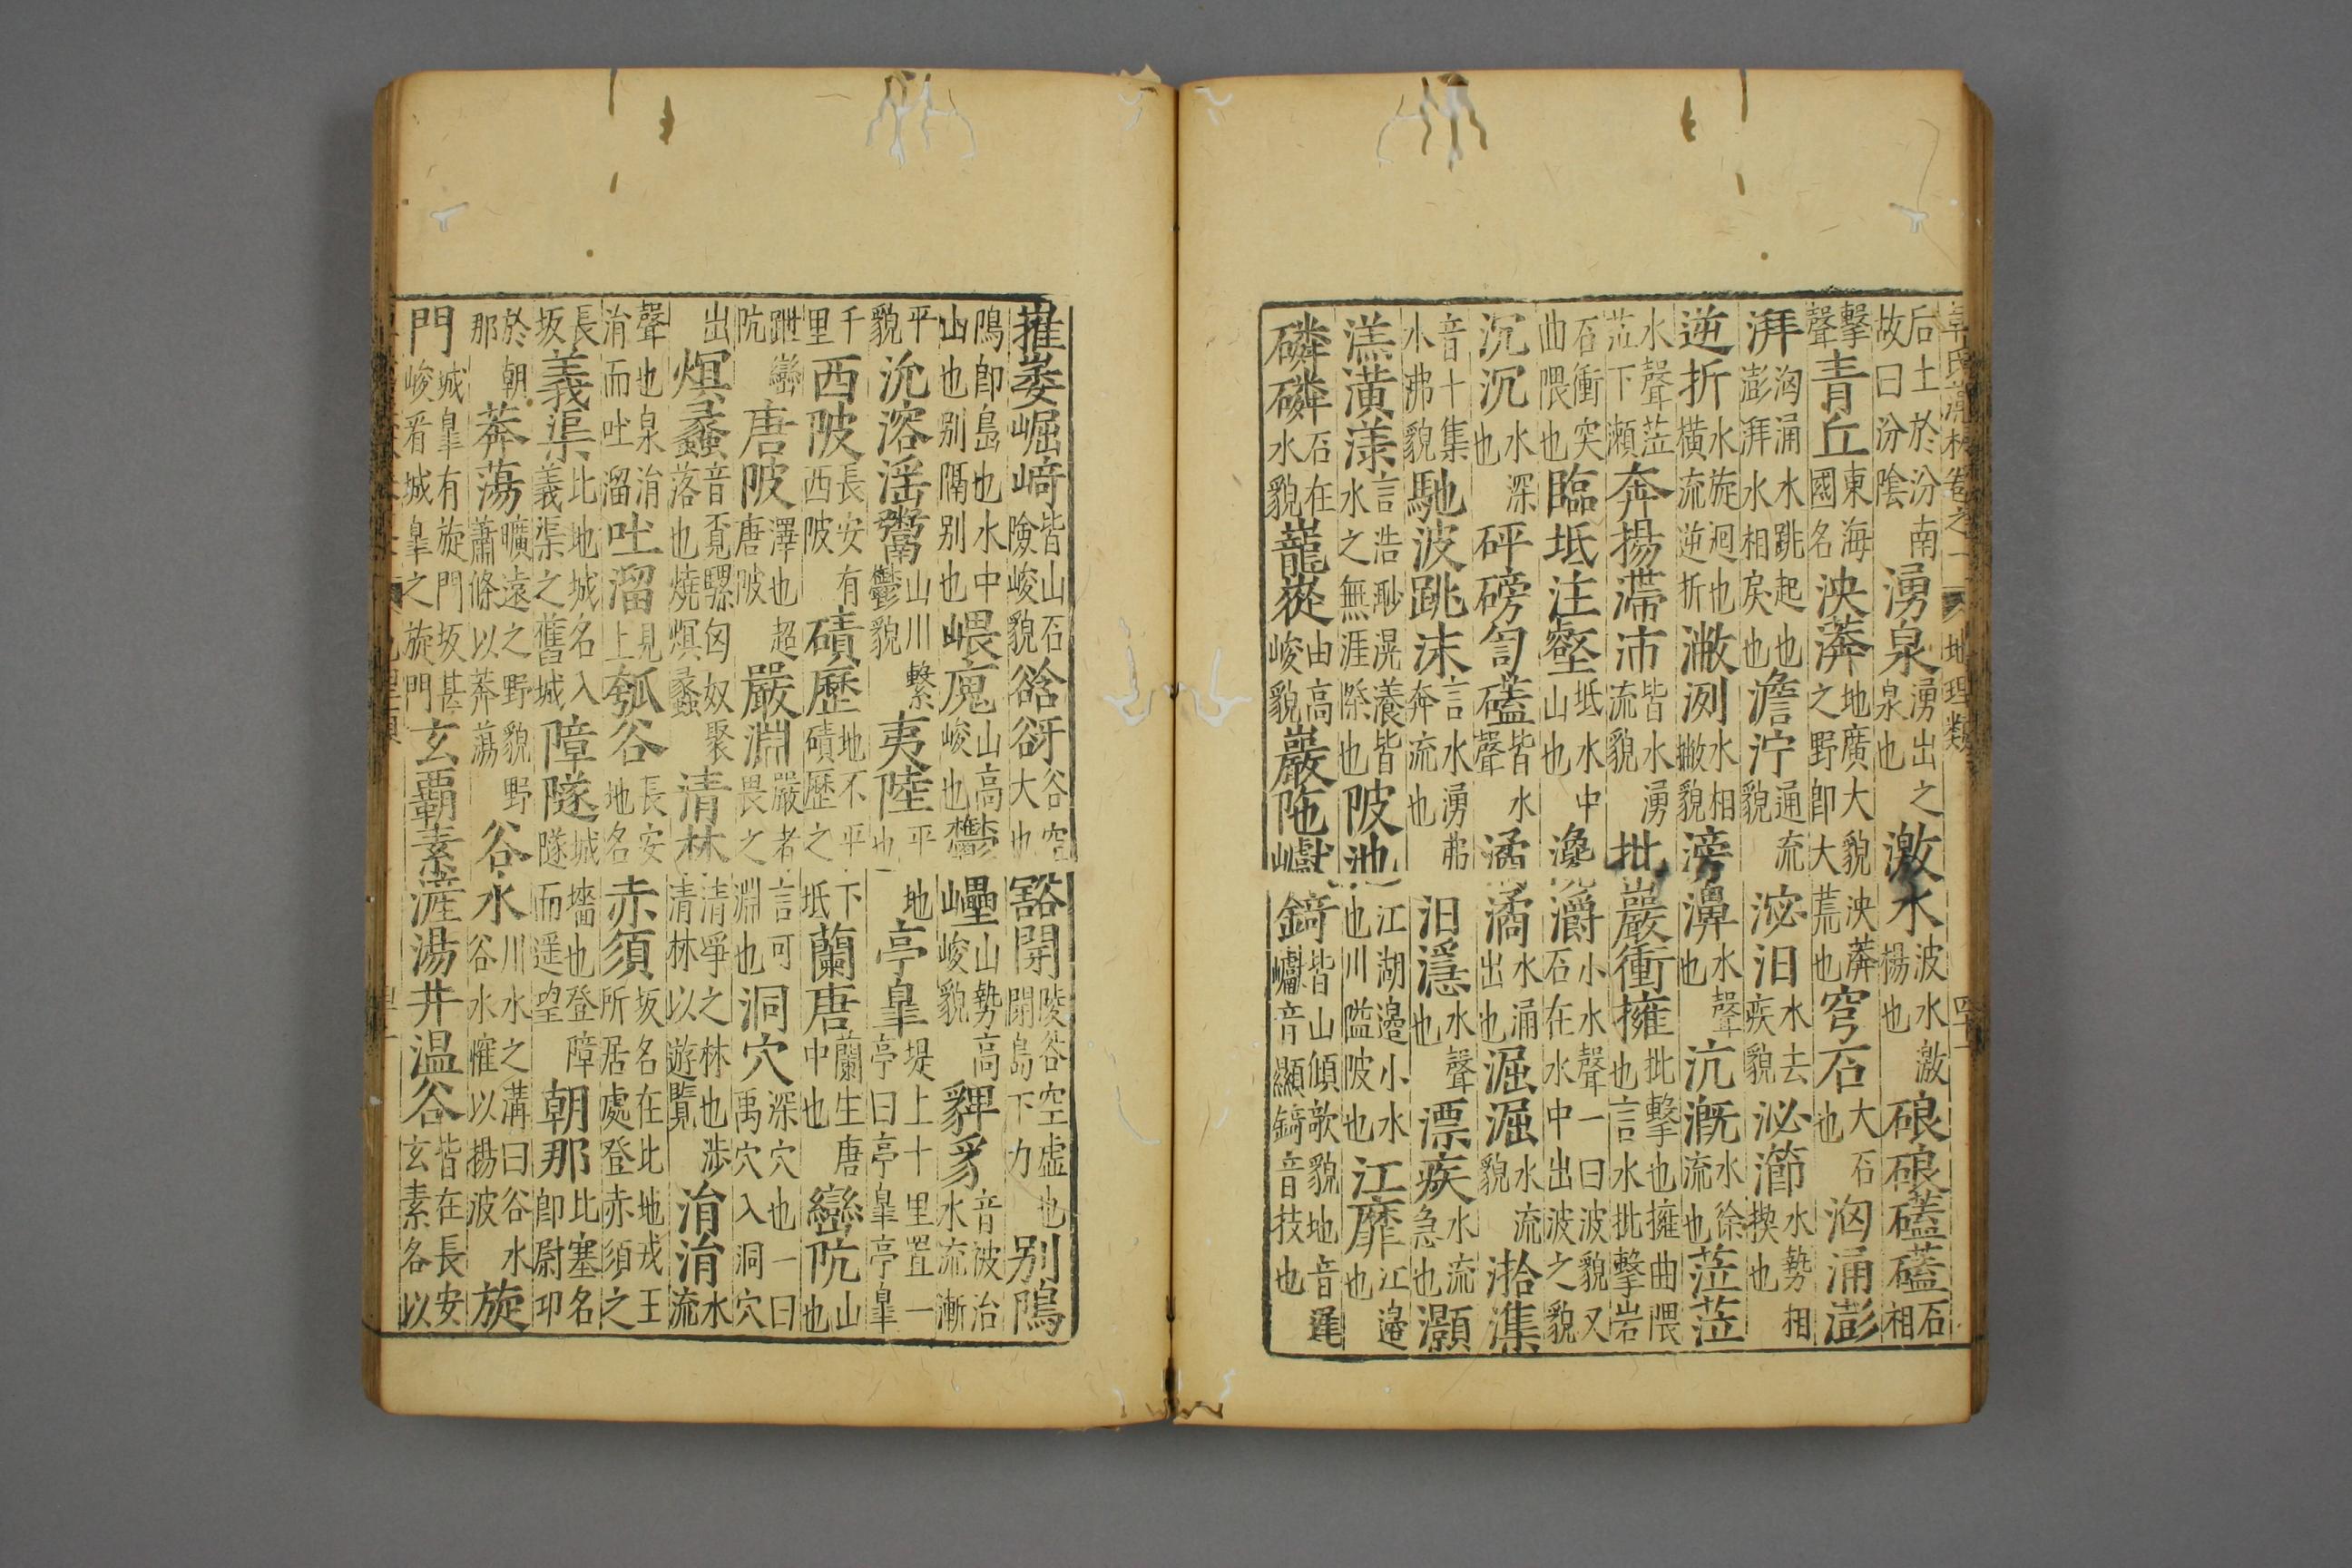 卷之一 地理類 四十一
后土於汾南故曰汾隂湧泉湧出之泉也激水波水激揚也硠硠礚礚石相
擊聲青丘東海國名泱漭地廣大貌泱漭之野卽大荒也穹石大石也洶涌澎
湃洶涌水跳起也澎湃水相戾也澹泞通流貌滵汨水去疾貌泌瀄水勢相揳也
逆折水旋廻也橫流逆折潎洌水相撇貌滂濞水聲也沆溉水徐流也莅莅
水聲莅莅下瀬奔揚滯沛皆水湧流貌批巖衝擁批擊也擁曲隈也言水批擊岩
石衝突曲隈也臨坻注壑坻水中山也瀺灂小水聲一曰波貌又石在水中出波之貌
沉沉水深也砰磅訇礚皆水聲潏潏水涌出也淈淈水流貌湁潗
音十集水弗貌馳波跳沫言水湧弗奔流也汨㵫水聲也漂疾水流急也灝
溔潢漾言浩渺滉養皆水之無涯際也陂池江湖邊小水也川隘陂也江靡江邊也
磷磷石在水貌巃嵸由高峻貌巖陁巘錡皆山傾欹貌地音遲巘音顯錡音技也
摧崣崛崎皆山石險峻貌谽谺谷空大也豁閕陵谷空虛也閕島下力別隝
隝卽島也水中山也别隔别也崴廆山高峻也鬱壘山勢高峻貌貏豸音被治水流漸
平貌沇溶淫鬻山川繫鬱貌夷陸平地也亭臯堤上十里置一亭曰亭臯亭臯
千里西陂長安有西陂磧歷地不平下磧歷之坻蘭唐蘭生唐中也巒阬山也
跇巒阬唐陂澤也超唐陂嚴淵嚴者言可畏之淵也洞穴深穴也一曰禹穴入洞穴
出熐蠡音覔騾匈奴聚落也燒熐蠡清林清爭之林也涉清林以遊覽涓涓水流
聲也泉涓涓而吐溜吐溜見上瓠谷長安地名赤須坂名在北地戎王所居處登赤須之
長坂義渠北地城名入義渠之舊城障隧城墻也登障隧而遥望朝那北塞名卽尉卭
於朝那莽蕩曠遠之野貌野蕭條以莽蕩谷水川水之溝曰谷水谷水漼以揚波旋
門城臯有旋門坂甚峻看城臯之旋門玄覇素滻湯井温谷皆在長安玄素各以